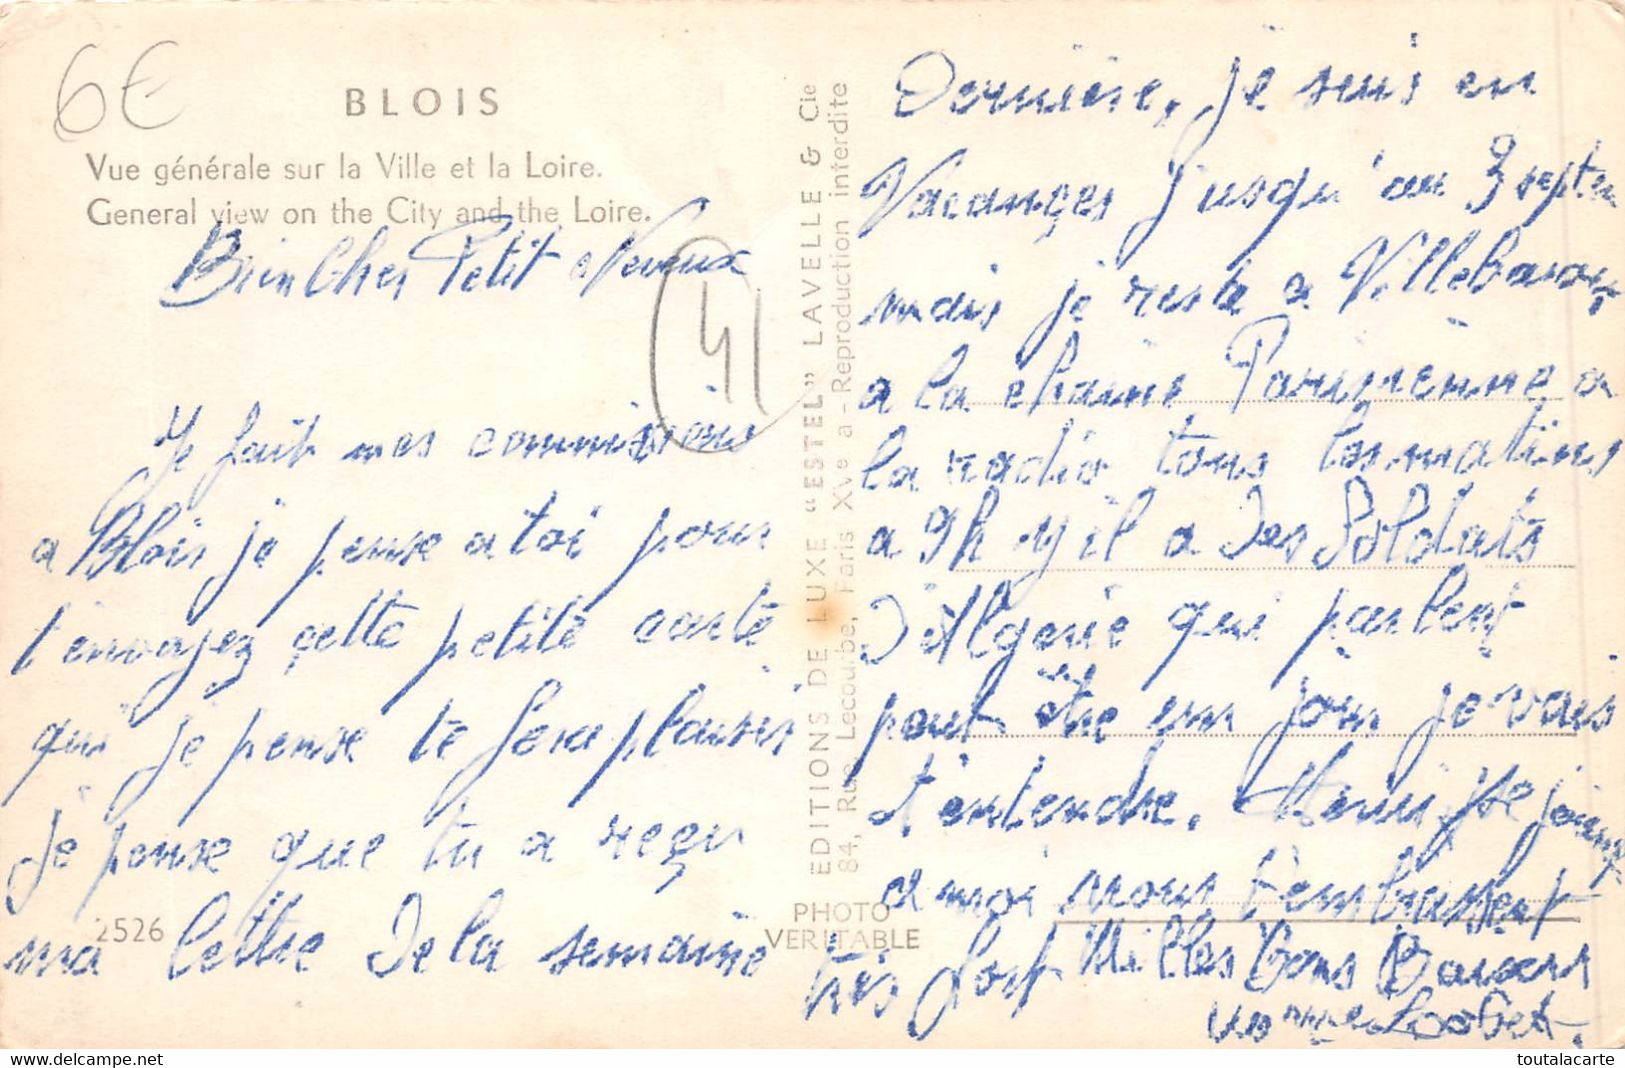 6€
BLOIS
Vue générale sur la Ville et la Loire.
General view on the City and the Loire.
Bien Cher Petit Neveux
41
Je fait mes commissions
a Blois je pense a toi pour
t'envoyez cette petite carte
qui je pense te fera plaisir
je pense que tu a reçu
ma lettre De la semaine
2526
EDITIONS DE LUXE "ESTEL" LAVELLE & Cie
84, Rue Lecourbe, Paris XVe a - Reproduction interdite
PHOTO
VERITABLE
Dernière, je suis en
Vacanges jusqu'au 3 septem
mais je reste a Villebarou
a la chaine Parisienne a
la radio tous les matins
a 9h y il a Des Soldats
D'Algerie qui parlent
peut être un jour je vais
t'entendre. Henri se joient
a moi nous t'embrassent
très fort Milles Bons Baisers
toutalacarte